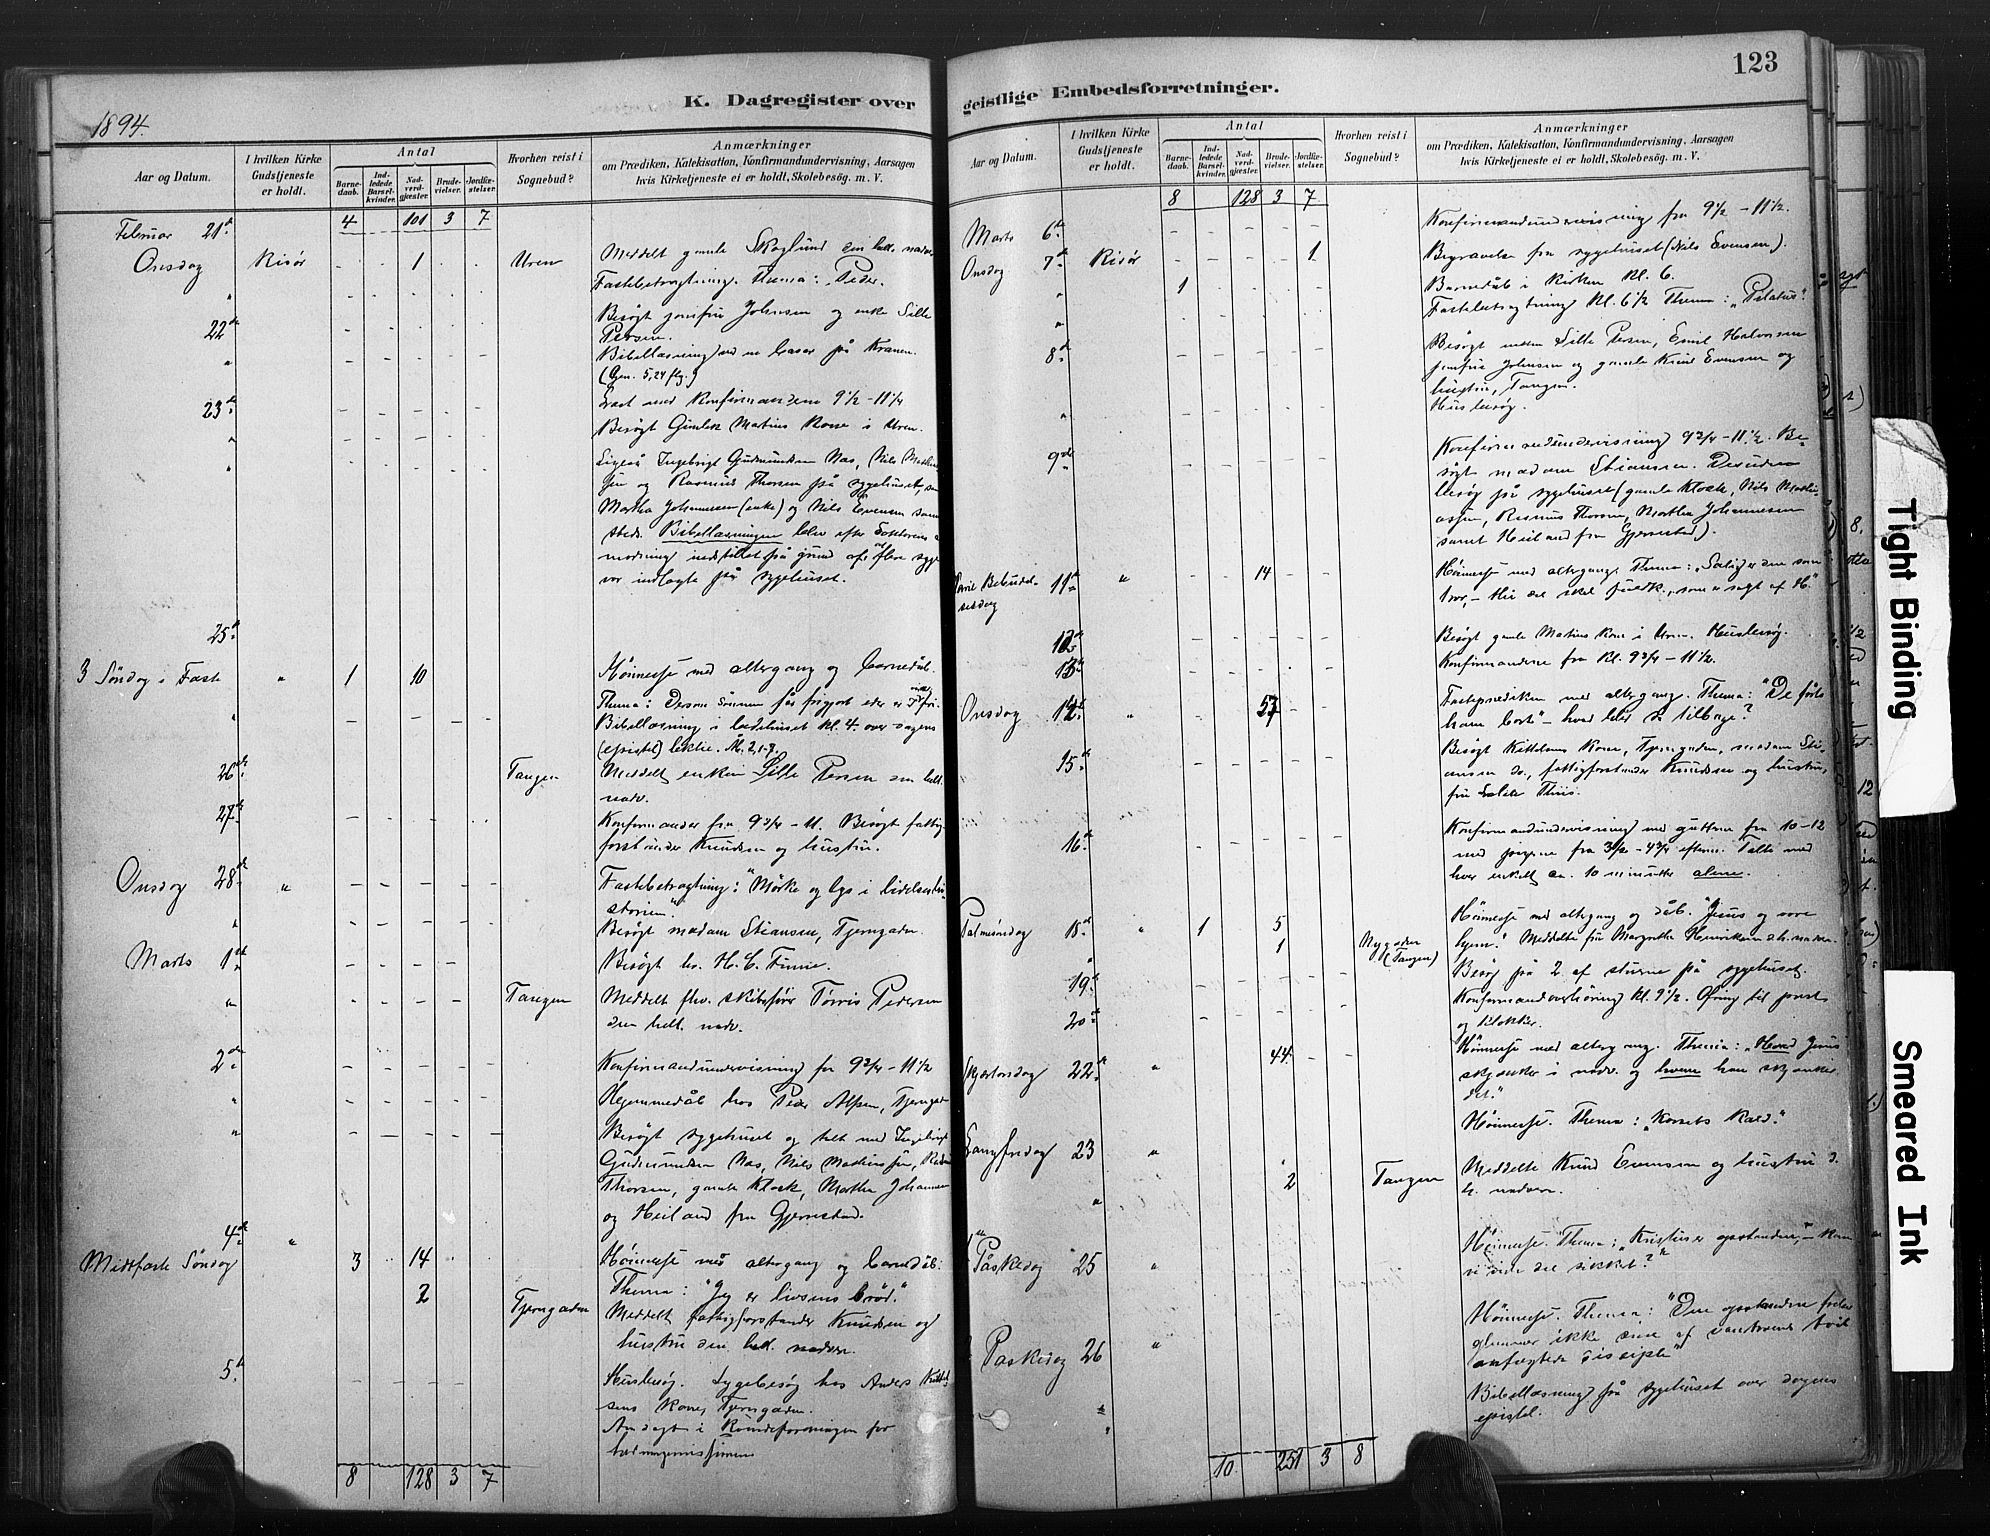 123
K. Dagregister over geistlige Embedsforretninger.
1894.
Aar og Datum.
I hvilken Kirke Gudstjeneste er holdt.
Antal
Barnedaab.
Indledede Barselkvinder.
Nadverdgjæster.
Brudevielser.
Jordfæstelser.
Hvorhen reist i Sognebud?
Anmærkninger
om Prædiken, Katekisation, Konfirmandundervisning, Aarsagen
hvis Kirketjeneste ei er holdt, Skolebesøg. m. V.
4 101 3 7
Februar 21de
Onsdag Risör 1 Uren Meddelt gamle Skoglund den hell. nadv.
Fastebetragtning. Thema: Peder.
22de Besögt jomfru Johnsen og enke Sille
Persen.
Bibellæsning på Kranen.
(Gen. 5,24 flg.)
23de med konfirmanderne 9½–11¼
Besögt Martius Kone i Uren.
Ligeså Ingebrigt Gudmundsen Næs, Nils
og Rasmus Thorsen på sygehuset,
Martha Johannesen (enke) og Nils Evensen
steds. Bibellæsningen blev efter Doktorens
indstillet på grund af at flere syge
var indlagte på sygehuset.
25de
3 Söndag i Faste " 1 10 Höimesse med altergang og barnedåb.
Thema: Dersom Sönnen får frigjort eder
Bibellæsning i bedehuset kl. 4. over dagens
(epistel) lektie.
26de Tangen Meddelt enken Sille Persen den hell.
nadv.
27de Konfirmander fra 9¾–11. Besögt fattig-
forstander Knudsen og hustru.
Onsdag 28de " Fastebetragtning: "Mörke og lys i lidelseshi-
storien".
Besögt madam Stiansen, Tjerngaden.
Marts 1ste Besögt hr. H. C. Finne.
" Tangen Meddelt fhv. skibsförer Törris Pedersen
den hell. nadv.
2den Konfirmandundervisning fra 9¾–11½
Hjemmedåb hos Peder Alfsen,
Besögt sygehuset og talt med Ingebrigt
Gudmundsen Næs, Nils
Thorsen, gamle Klock, Martha Johannesen
og Heiland fra Gjerrestad.
4de "
Midtfaste Söndag 3 14 Höimesse med altergang og barnedåb.
Thema: "Jeg er livsens bröd."
2 Tjerngaden Meddelt fattigforstander Knudsen og
hustru den hell. nadver.
5te Husbesög. Sygebesög hos Anders
sens kone, Tjerngaden.
Andagt i Kvindeforeningen for
8 128 3 7
Aar og Datum.
I hvilken Kirke Gudstjeneste er holdt.
Antal
Barnedaab.
Indledede Barselkvinder.
Nadverdgjæster.
Brudevielser.
Jordfæstelser.
Hvorhen reist i Sognebud?
Anmærkninger
om Prædiken, Katekisation, Konfirmandundervisning, Aarsagen
hvis Kirketjeneste ei er holdt, Skolebesög. m. V.
8 128 3 7
Marts 6te Konfirmandundervisning fra 9½–11½.
Onsdag 7de Risör 1 Begravelse fra sygehuset (Nils Evensen).
1 Barnedåb i Kirken kl. 6.
Fastebetragtning kl. 6½ Thema: "Pilatus".
8de Besögt enken Sille Persen, Emil Halvorsen
jomfru Johnsen og gamle Knud Evensen og
hustru, Tangen.
" Husbesög.
9de Konfirmandundervisning 9¾–11½. Be-
sögt madam Stiansen. Desuden
besög på sygehuset (gamle Klock, Nils
Rasmus Thorsen, Martha Johannesen
samt Heiland fra Gjerrestad).
Marie Bebudel-
sesdag 11te " 14 Höimesse med altergang. Thema: "Salig er den som
tror,– thi det skal fuldk., som er sagt af H."
12te Besögt gamle Martius kone i Uren. Husbesög.
13de Konfirmanderne fra kl. 9¾–11½.
Onsdag 14de " 57 Fasteprædiken med altergang. Thema: "De förte
ham bort"– hvad blev så tilbage?
15de Besögt Kittelsens kone, Tjerngaden, madam Sti-
ansen do., fattigforstander Knudsen og hustru,
fru Thiis.
16de Konfirmandundervisning med gutterne fra 10–12
med pigerne fra 3½–4¾ efterm. Talte med
hver enkelt ca. 10 minutter alene.
Palmesöndag 18de " 1 5 Höimesse med altergang og dåb. "Jesus og vore
byer." Meddelte fru Margrethe Henriksen d. h. nadver.
1 Nygaden (Tangen)
19de Besög på 2 af stuerne på sygehuset.
20de Konfirmandoverhöring kl. 9½. Ofring til prest
og klokker.
Skjærtorsdag 22de " 44 Höimesse med altergang. Thema: "Hvad Jesus
skjænker i nadv. og hvem han skjænker
det."
Langfredag 23 " Höimesse. Thema: "Korsets Kald."
" 2 Tangen Meddelte Knud Evensen og hustru d.
h. nadver.
1ste Påskedag 25 " Höimesse. Thema: "Kristus er opstanden,"– kan
vi vide det sikkert?"
Paskedag 26 " Höimesse. Thema: "Den opstandne frelser
glemmer ikke sine af vantroens tvil
anfægtede disciple"
" Bibellæsning på sygehuset over dagens
epistel.
10 251 3 8
Tight Binding
Smeared Ink